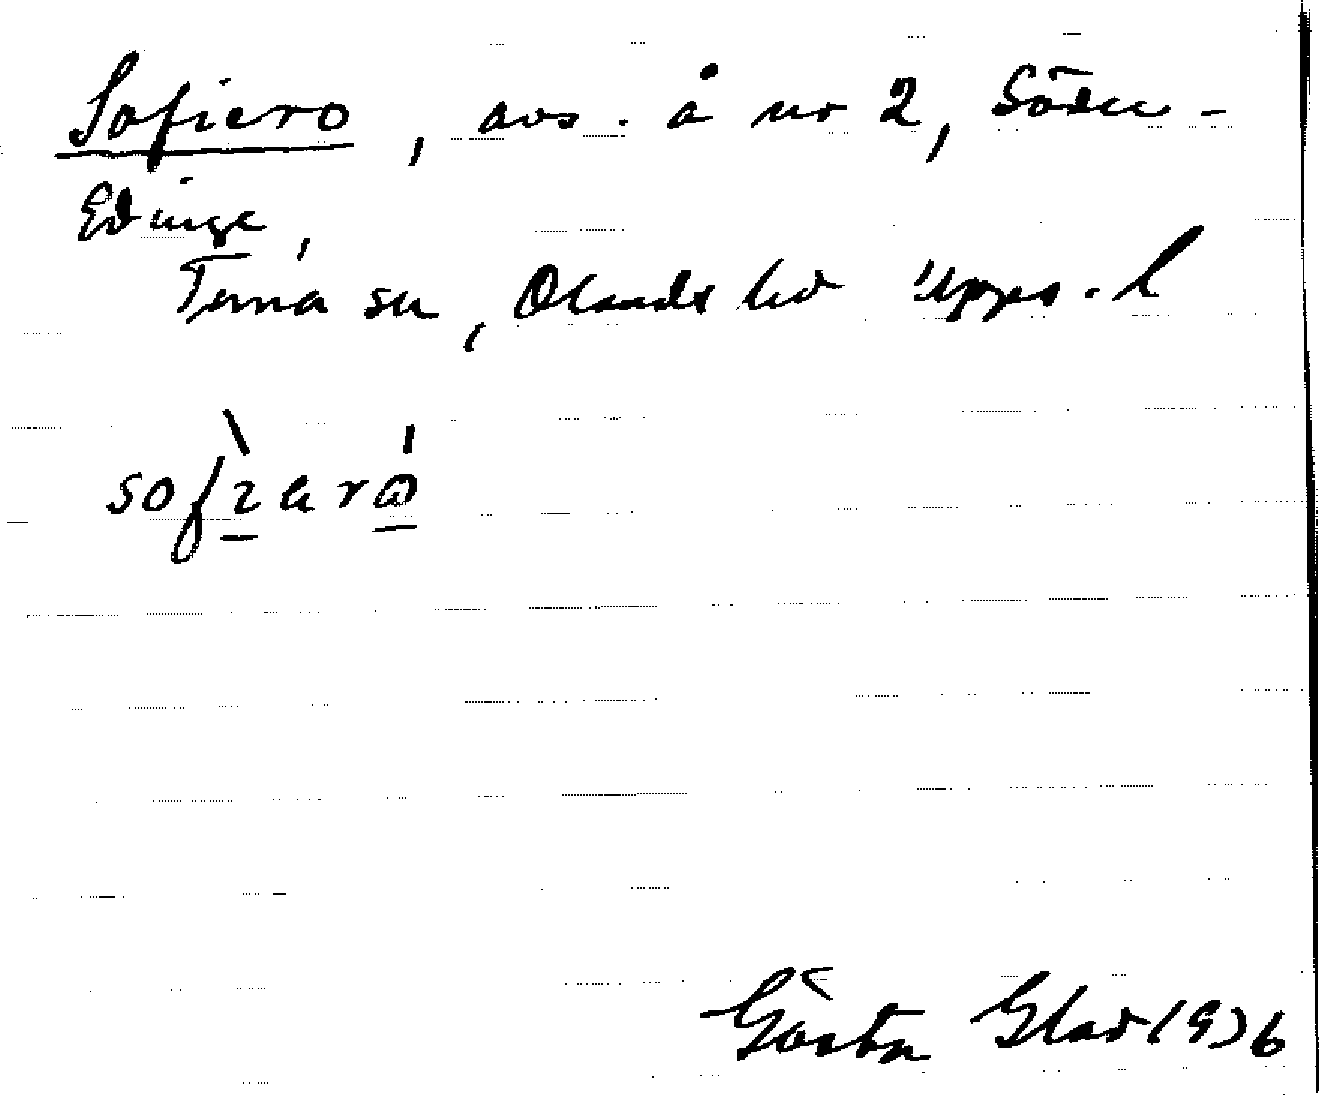 Sofiero, avs. å nr 2, Söder-
Edinge,
Tensta sn, Olands hd Upps. l
sofìerώ̲
Gösta Glad 1936